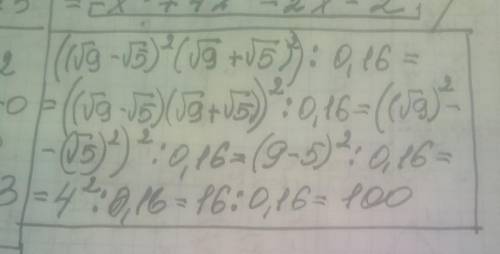 = x + 4x - 2x - 2
((√9-√5)²(√9+√5)²) : 0,16 =
= ((√9-√5)(√9+√5))² : 0,16 = ((√9)² -
- (√5)²)² : 0,16 = (9-5)² : 0,16 =
= 4² : 0,16 = 16 : 0,16 = 100